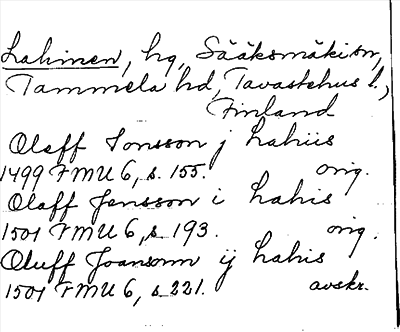 Lahinen, hg, Sääksmäki sn,
Tammela hd, Tavastehus l.,
Finland
Olaff Jonsson j Lahiis
1499 FMU 6, s. 155. orig.
Olaff Jensson i Lahis
1501 FMU 6, s. 193. orig.
Oluff Joansonn ij Lahis
1501 FMU 6, s. 221. avskr.